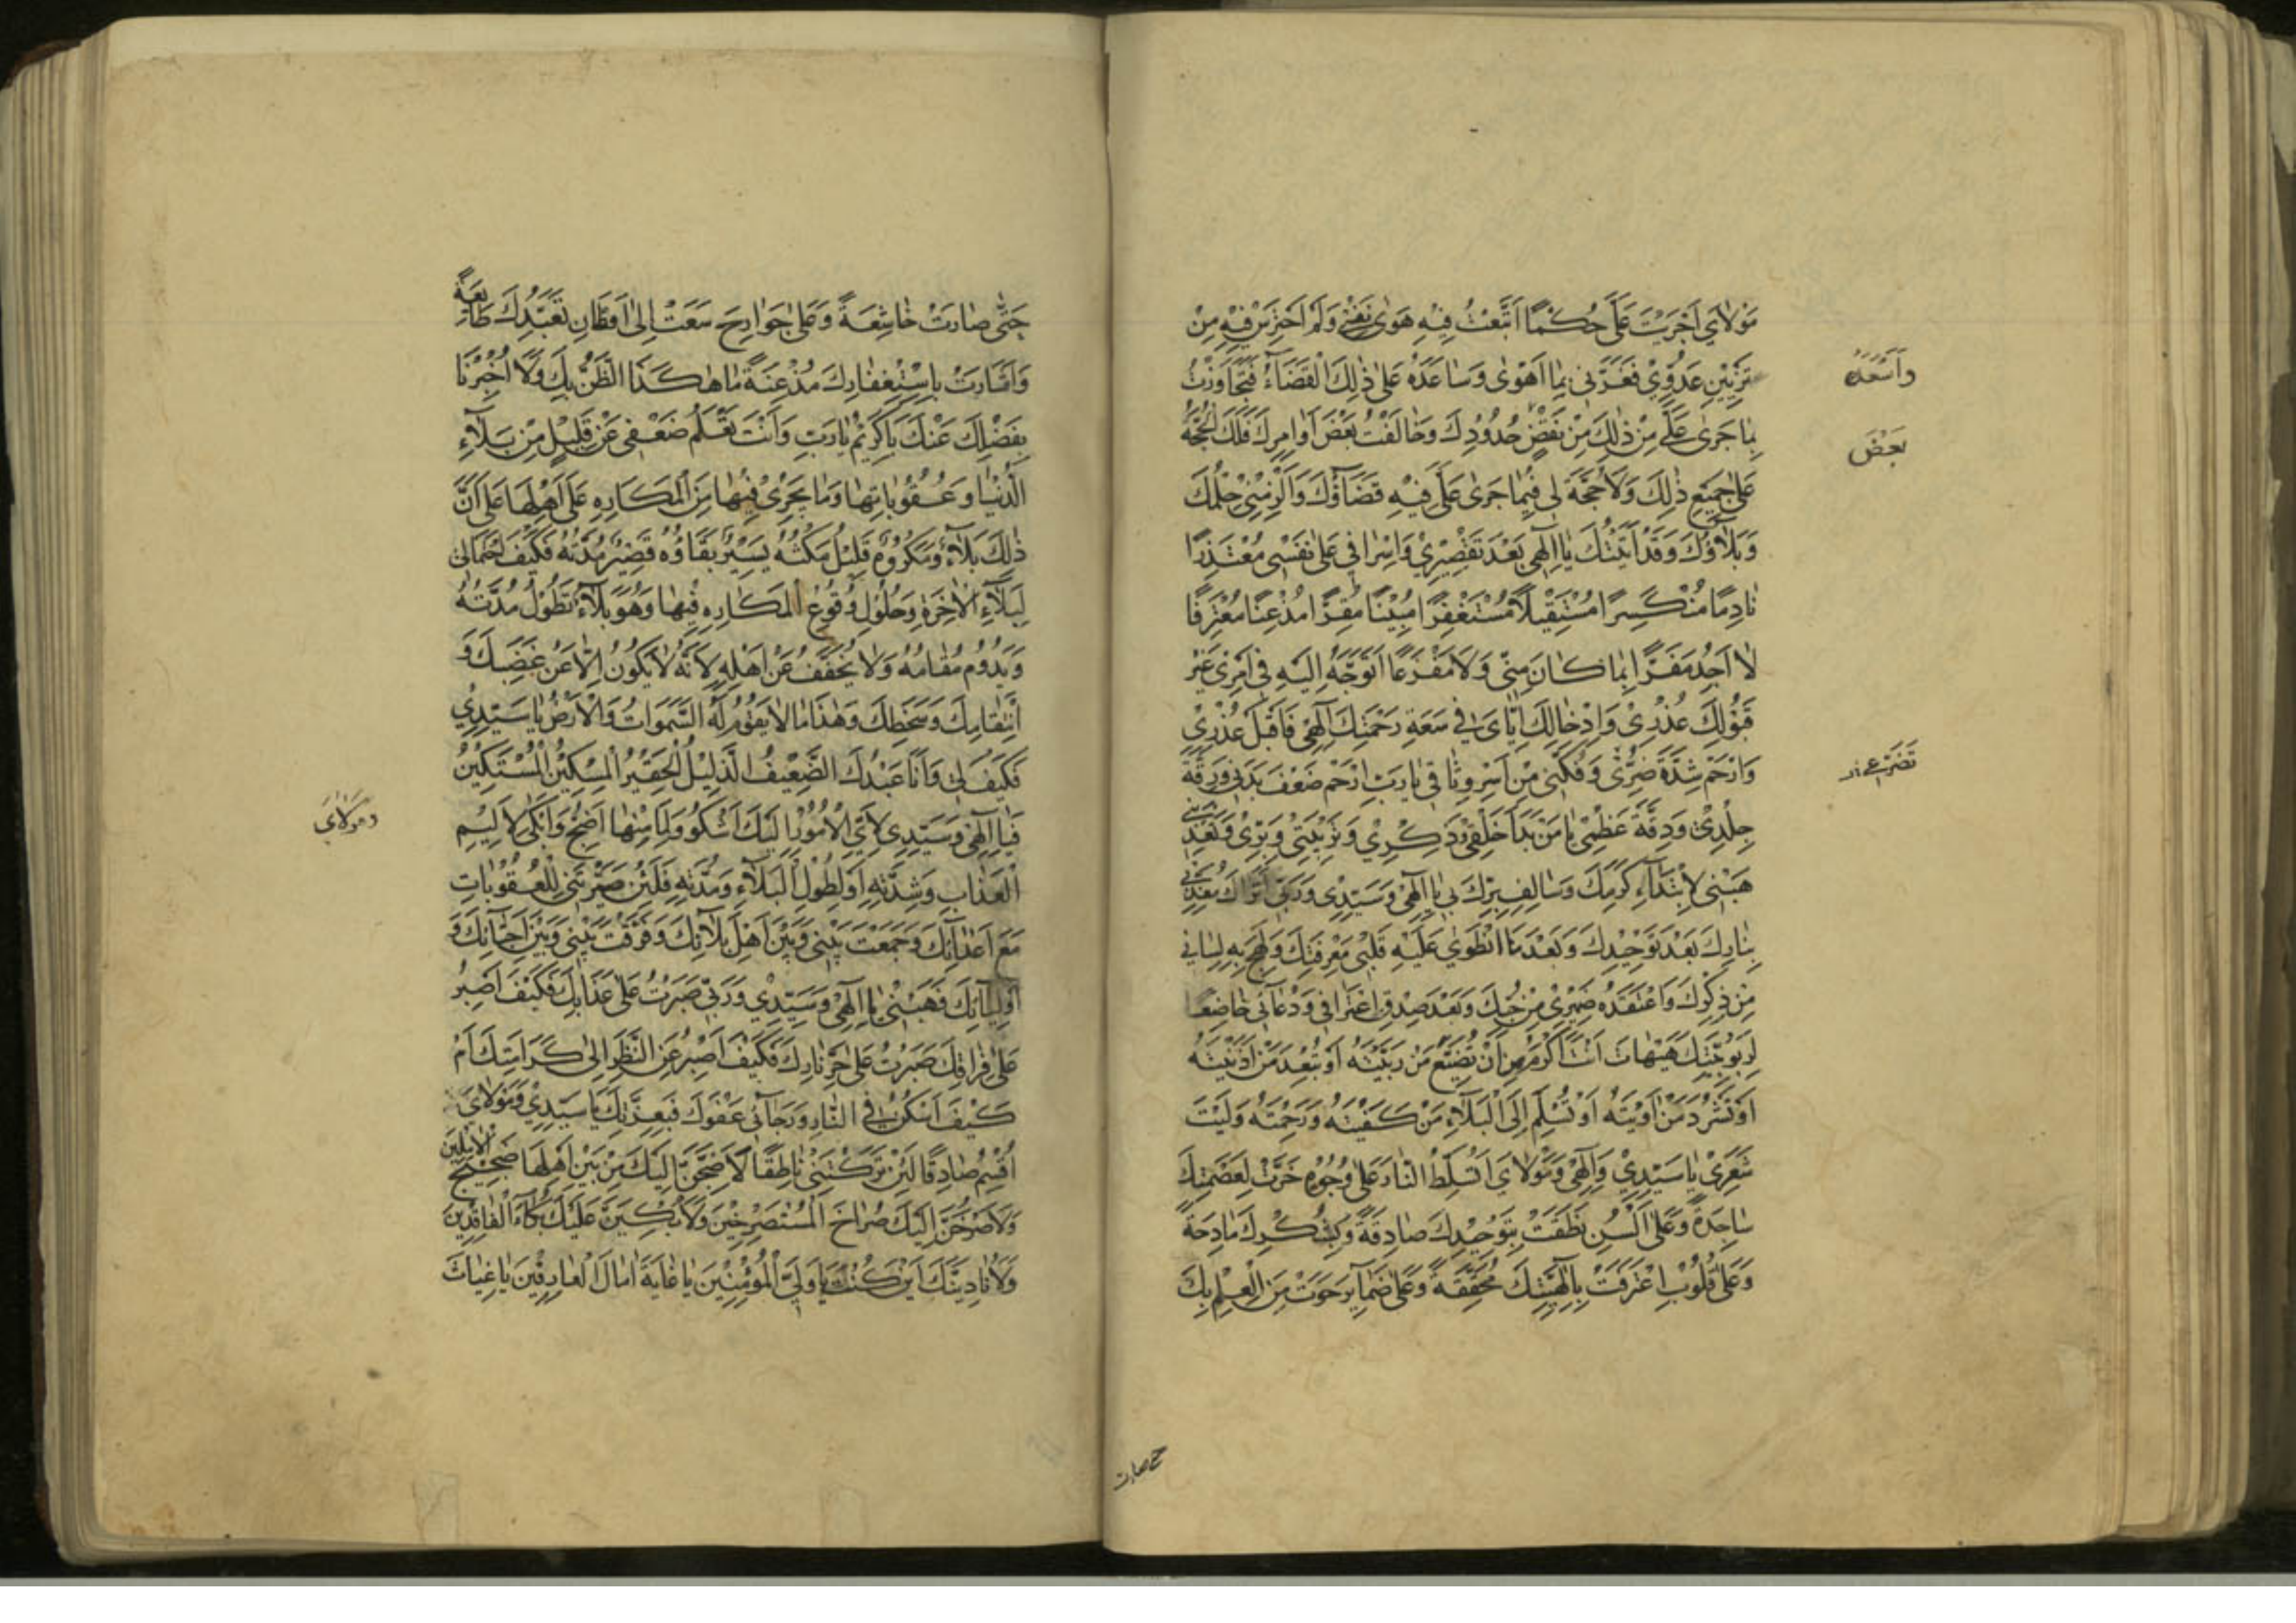 مَوْلَايَ اَجْرَيْتَ عَلَىَّ حُكْمًا اَتَّبَعْتُ فِيْهِ هَوٰى نَفْسِيْ وَلَمْ اَحْتَرِسْ فِيْهِ مِنْ
تَزْيِيْنِ عَدُوِّيْ فَغَرَّنِي بِمَا اَهْوٰى وَسَاعَدَهُ عَلٰى ذٰلِكَ الْقَضَآءُ فَتَجَاوَزْتُ
وَاَسْعَدَهُ
بِمَا جَرٰى عَلَىَّ مِنْ ذٰلِكَ مِنْ نَقْضِ حُدُوْدِكَ وَخَالَفْتُ بَعْضَ اَوَامِرِكَ فَلَكَ الْحُجَّةُ
بَعْضَ
عَلَىَّ جَمِيْعِ ذٰلِكَ وَلَا حُجَّةَ لِى فِيْمَا جَرٰى عَلَىَّ فِيْهِ قَضَآؤُكَ وَاَلْزَمَنِيْ حُكْمُكَ
وَبَلَاؤُكَ وَقَدْ اَتَيْتُكَ يَا اِلٰهِى بَعْدَ تَقْصِيْرِيْ وَاِسْرَافِي عَلٰى نَفْسِى مُعْتَذِرًا
نَادِمًا مُنْكَسِرًا مُسْتَقِيْلًا مُسْتَغْفِرًا مُنِيْبًا مُقِرًّا مُذْعِنًا مُعْتَرِفًا
لَا اَجِدُ مَفَرًّا مِمَّا كَانَ مِنِّى وَلَا مَفْزَعًا اَتَوَجَّهُ اِلَيْهِ فِى اَمْرِى غَيْرَ
قَبُوْلِكَ عُذْرِيْ وَاِدْخَالِكَ اِيَّاىَ فِى سَعَةِ رَحْمَتِكَ اِلٰهِىْ فَاقْبَلْ عُذْرِيْ
وَارْحَمْ شِدَّةَ ضُرِّىْ وَفُكَّنِى مِنْ اَسْرِ وِثَاقِى يَارَبِّ ارْحَمْ ضَعْفَ بَدَنِى وَرِقَّةَ
جِلْدِىْ وَدِقَّةَ عَظْمِىْ يَا مَنْ بَدَاَ خَلْقِىْ وَذِكْرِيْ وَتَرْبِيَتِىْ وَبِرِّىْ وَتَغْذِيَتِى
هَبْنِى لِابْتِدَآءِ كَرَمِكَ وَسَالِفِ بِرِّكَ بِى يَا اِلٰهِىْ وَسَيِّدِىْ وَرَبِّى اَتُرَاكَ مُعَذِّبِى
بِنَارِكَ بَعْدَ تَوْحِيْدِكَ وَبَعْدَ مَا انْطَوٰى عَلَيْهِ قَلْبِى مِنْ مَعْرِفَتِكَ وَلَهِجَ بِهِ لِسَانِى
مِنْ ذِكْرِكَ وَاعْتَقَدَهُ ضَمِيْرِىْ مِنْ حُبِّكَ وَبَعْدَ صِدْقِ اعْتِرَافِى وَدُعَآئِى خَاضِعًا
لِرُبُوْبِيَّتِكَ هَيْهَاتَ اَنْتَ اَكْرَمُ مِنْ اَنْ تُضَيِّعَ مَنْ رَبَّيْتَهُ اَوْ تُبْعِدَ مَنْ اَدْنَيْتَهُ
اَوْ تُشَرِّدَ مَنْ اٰوَيْتَهُ اَوْ تُسْلِمَ اِلَى الْبَلَآءِ مَنْ كَفَيْتَهُ وَرَحِمْتَهُ وَلَيْتَ
شِعْرِىْ يَا سَيِّدِيْ وَاِلٰهِىْ وَمَوْلَاىَ اَتُسَلِّطُ النَّارَ عَلٰى وُجُوْهٍ خَرَّتْ لِعَظَمَتِكَ
سَاجِدَةً وَعَلٰى اَلْسُنٍ نَطَقَتْ بِتَوْحِيْدِكَ صَادِقَةً وَبِشُكْرِكَ مَادِحَةً
وَعَلٰى قُلُوْبٍ اعْتَرَفَتْ بِاِلٰهِيَّتِكَ مُحَقِّقَةً وَعَلٰى ضَمَآئِرَ حَوَتْ مِنَ الْعِلْمِ بِكَ
حتى صارت
حَتّٰى صَارَتْ خَاشِعَةً وَعَلٰى جَوَارِحَ سَعَتْ اِلٰى اَوْطَانِ تَعَبُّدِكَ طَائِعَةً
وَاَشَارَتْ بِاِسْتِغْفَارِكَ مُذْعِنَةً مَا هٰكَذَا الظَّنُّ بِكَ وَلَا اُخْبِرْنَا
بِفَضْلِكَ عَنْكَ يَاكَرِيْمُ يَارَبِّ وَاَنْتَ تَعْلَمُ ضَعْفِى عَنْ قَلِيْلٍ مِنْ بَلَآءِ
الدُّنْيَا وَعُقُوْبَاتِهَا وَمَا يَجْرِىْ فِيْهَا مِنَ الْمَكَارِهِ عَلٰى اَهْلِهَا عَلٰى اَنَّ
ذٰلِكَ بَلَآءٌ وَمَكْرُوْهٌ قَلِيْلٌ مَكْثُهُ يَسِيْرٌ بَقَاؤُهُ قَصِيْرٌ مُدَّتُهُ فَكَيْفَ احْتِمَالِى
لِبَلَآءِ الْاٰخِرَةِ وَحُلُوْلِ وُقُوْعِ الْمَكَارِهِ فِيْهَا وَهُوَ بَلَآءٌ تَطُوْلُ مُدَّتُهُ
وَيَدُوْمُ مُقَامُهُ وَلَا يُخَفَّفُ عَنْ اَهْلِهِ لِاَنَّهُ لَا يَكُوْنُ اِلَّا عَنْ غَضَبِكَ وَ
اِنْتِقَامِكَ وَسَخَطِكَ وَهٰذَا مَا لَا يَقُوْمُ لَهُ السَّمٰوَاتُ وَالْاَرْضُ يَا سَيِّدِيْ
فَكَيْفَ لِى وَاَنَا عَبْدُكَ الضَّعِيْفُ الذَّلِيْلُ الْحَقِيْرُ الْمِسْكِيْنُ الْمُسْتَكِيْنُ
فَيَا اِلٰهِى وَسَيِّدِى لِاَىِّ الْاُمُوْرِ اِلَيْكَ اَشْكُو وَلِمَا مِنْهَا اَضِجُّ وَاَبْكِى لِاَلِيْمِ
وَمَوْلَايَ
الْعَذَابِ وَشِدَّتِهِ اَوْ لِطُوْلِ الْبَلَآءِ وَمُدَّتِهِ فَلَئِنْ صَيَّرْتَنِى لِلْعُقُوْبَاتِ
مَعَ اَعْدَآئِكَ وَجَمَعْتَ بَيْنِى وَبَيْنَ اَهْلِ بَلَآئِكَ وَفَرَّقْتَ بَيْنِى وَبَيْنَ اَحِبَّآئِكَ وَ
اَوْلِيَآئِكَ فَهَبْنِى يَا اِلٰهِىْ وَسَيِّدِيْ وَرَبِّى صَبَرْتُ عَلٰى عَذَابِكَ فَكَيْفَ اَصْبِرُ
عَلٰى فِرَاقِكَ صَبَرْتُ عَلٰى حَرِّ نَارِكَ فَكَيْفَ اَصْبِرُ عَنِ النَّظَرِ اِلٰى كَرَامَتِكَ اَمْ
كَيْفَ اَسْكُنُ فِى النَّارِ وَرَجَآئِى عَفْوُكَ فَبِعِزَّتِكَ يَا سَيِّدِيْ وَمَوْلَايَ
اُقْسِمُ صَادِقًا لَئِنْ تَرَكْتَنِىْ نَاطِقًا لَاَضِجَّنَّ اِلَيْكَ مِنْ بَيْنِ اَهْلِهَا ضَجِيْجَ الْاٰمِلِيْنَ
وَلَاَصْرُخَنَّ اِلَيْكَ صُرَاخَ الْمُسْتَصْرِخِيْنَ وَلَاَبْكِيَنَّ عَلَيْكَ بُكَآءَ الْفَاقِدِيْنَ
وَلَاُنَادِيَنَّكَ اَيْنَ كُنْتَ يَا وَلِىَّ الْمُؤْمِنِيْنَ يَا غَايَةَ اٰمَالِ الْعَارِفِيْنَ يَا غِيَاثَ